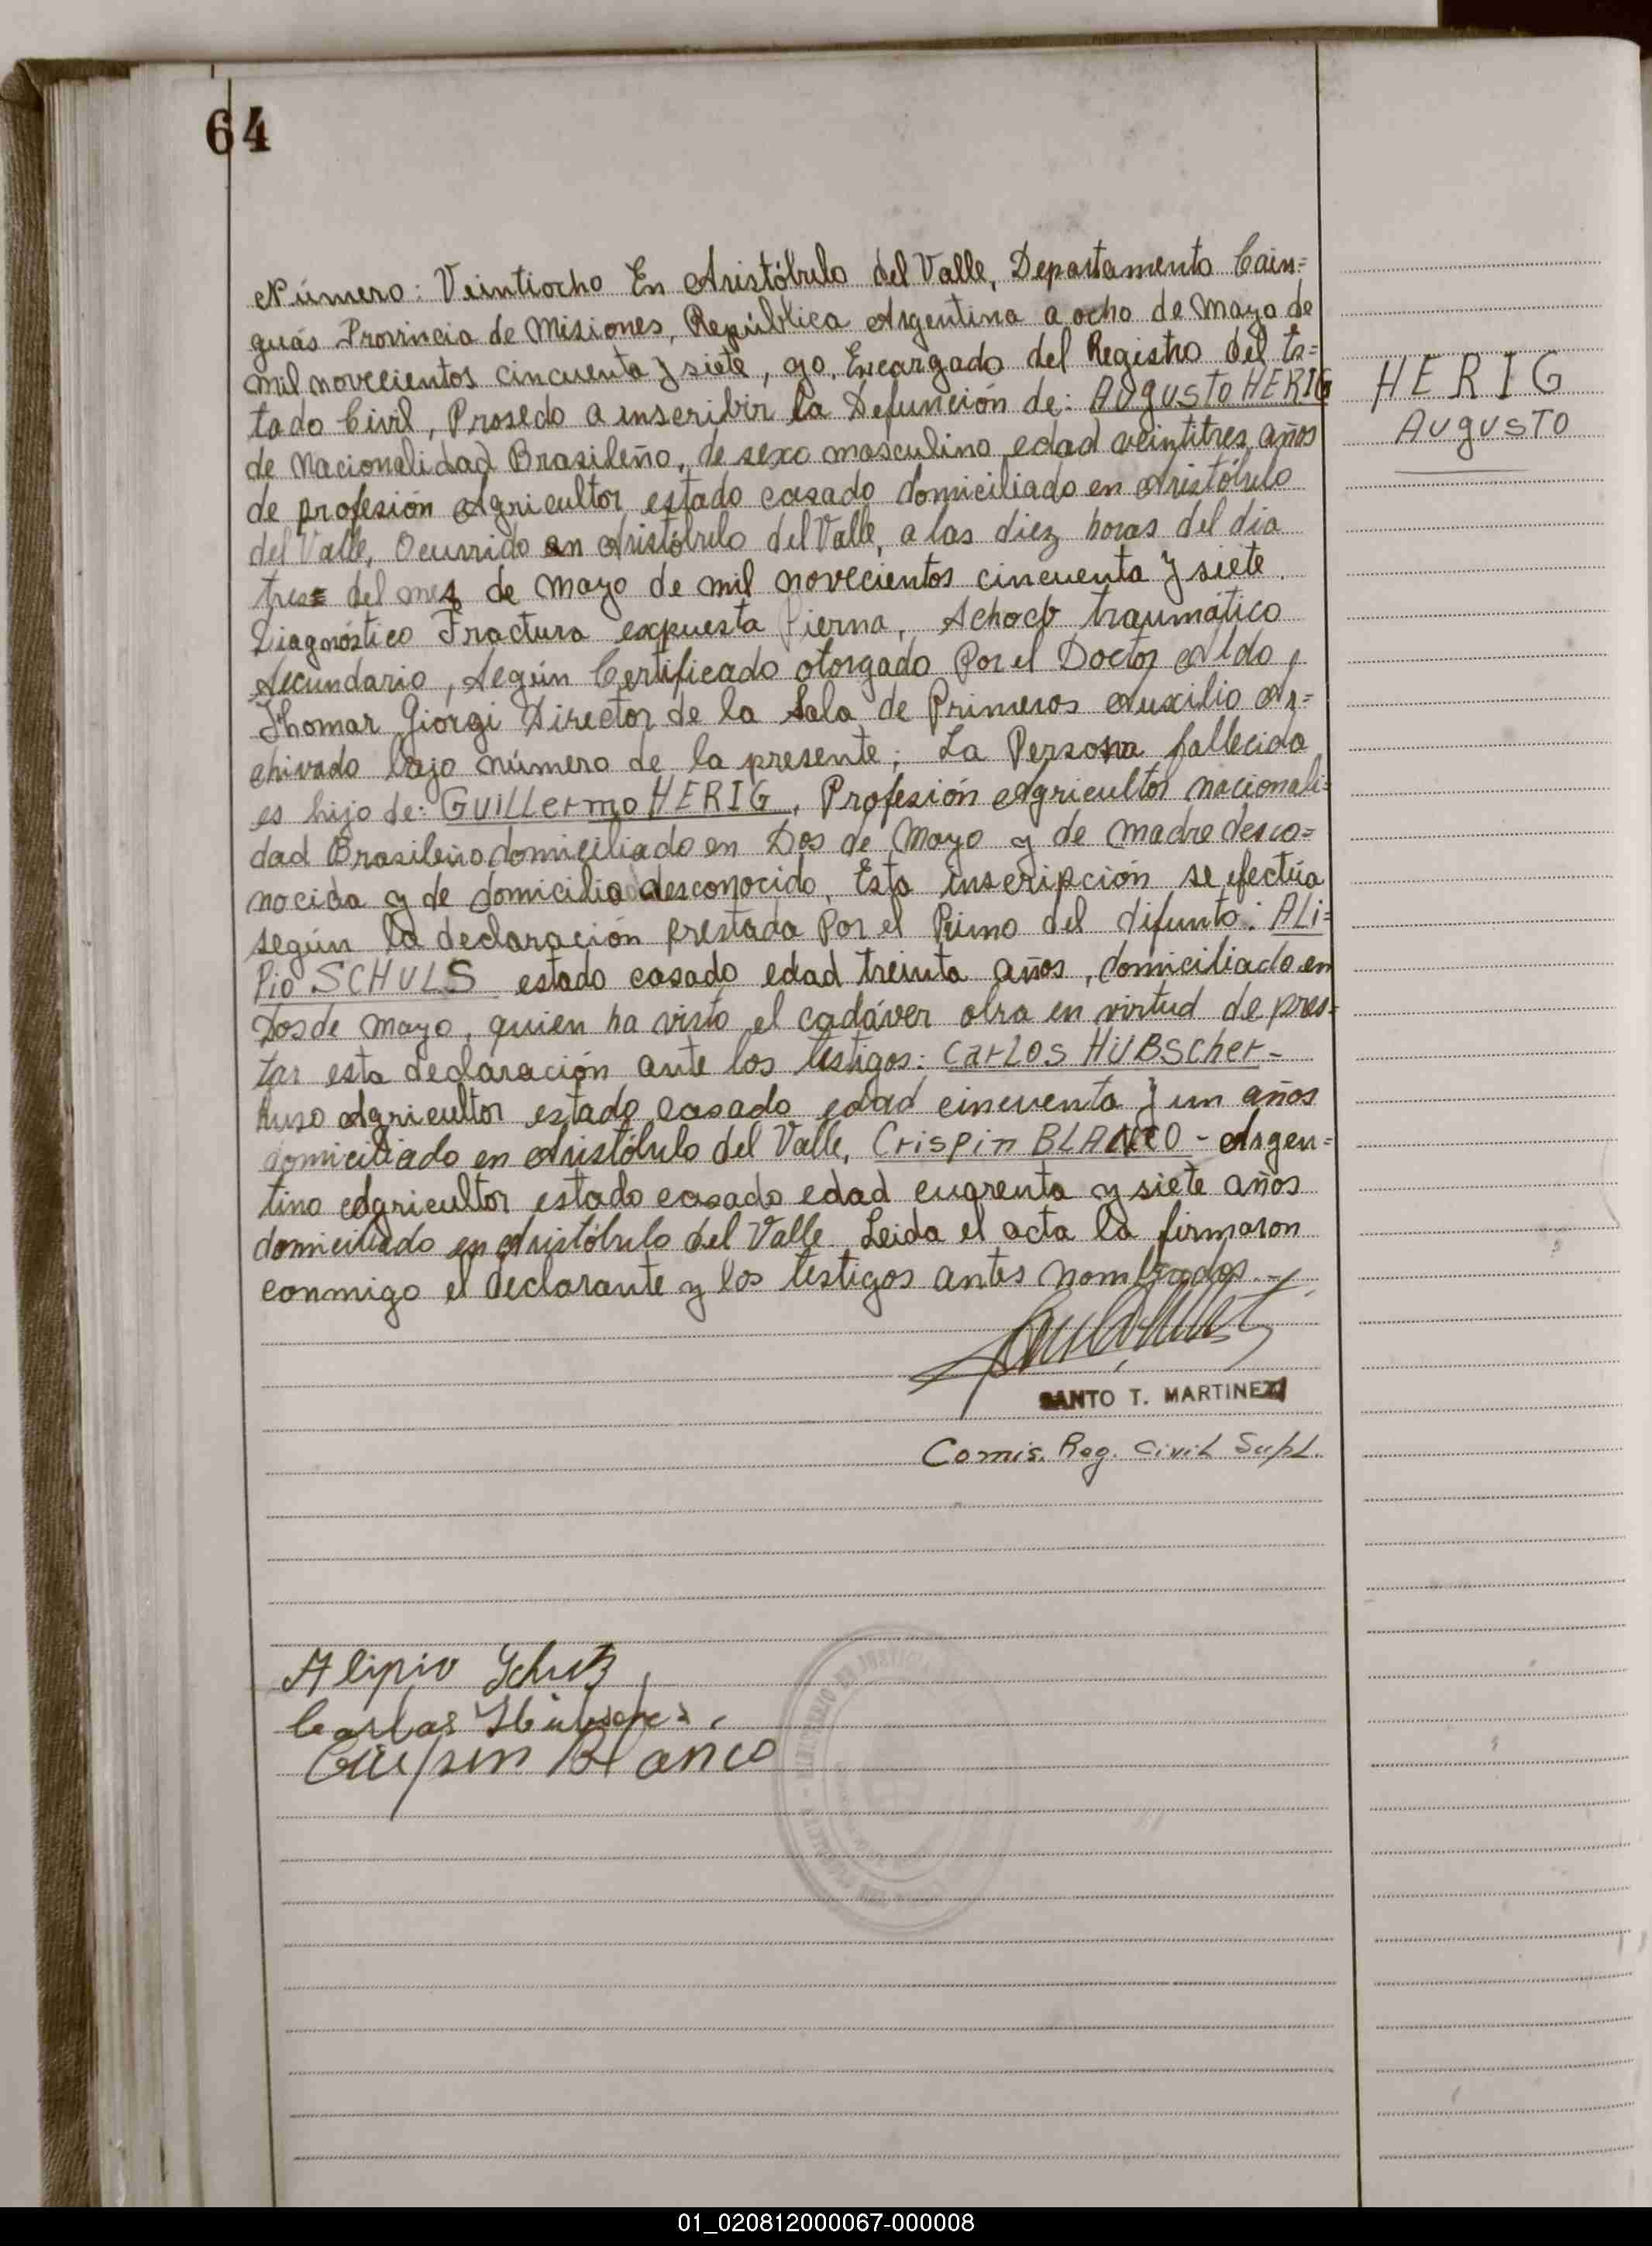 64
Número: Veintiocho En Aristóbulo del Valle, Departamento Cain=
guás Provincia de Misiones, República Argentina a ocho de Mayo de
mil novecientos cincuenta y siete, yo, Encargado del Registro del Es=
tado Civil, Prosedo a inscribir la Defunción de: AUgUSTO HERIG
HERIG
AUgUSTO
de nacionalidad Brasileño, de sexo masculino edad veintitres años
de profesión Agricultor estado casado domiciliado en Aristóbulo
del Valle, Ocurrido en Aristóbulo del Valle, a las diez horas del dia
tres= del mes de Mayo de mil novecientos cincuenta y siete.
Diagnóstico Fractura expuesta Pierna, Schock traumático
Secundario, Según Certificado otorgado Por el Doctor Aldo
Thomar Giorgi Director de la Sala de Primeros Auxilio Ar=
chivado bajo número de la presente; La Persona fallecida
es hijo de: GUILLermo HERIG, Profesión Agricultor nacionali=
dad Brasileño domiciliado en Dos de Mayo y de madre desco=
nocida y de domicilio desconocido, Esta inscripción se efectúa
según la declaración prestada Por el Primo del difunto: ALi=
Pio SCHULS estado casado edad treinta años, domiciliado en
Dos de Mayo, quien ha visto el cadáver obra en virtud de pres=
tar esta declaración ante los testigos: CarLos HÜBScher-
Ruso Agricultor estado casado edad cincuenta y un años
domiciliado en Aristóbulo del Valle, Crispin BLANCO - Argen=
tino Agricultor estado casado edad cuarenta y siete años
domiciliado en Aristóbulo del Valle Leida el acta la firmaron
conmigo el declarante y los testigos antes nombrados.-
SANTO T. MARTINEZ
Comis. Reg. Civil Supl.
Alipio Schulz
Carlos Hübscher
Crispin Blanco
01_020812000067-000008